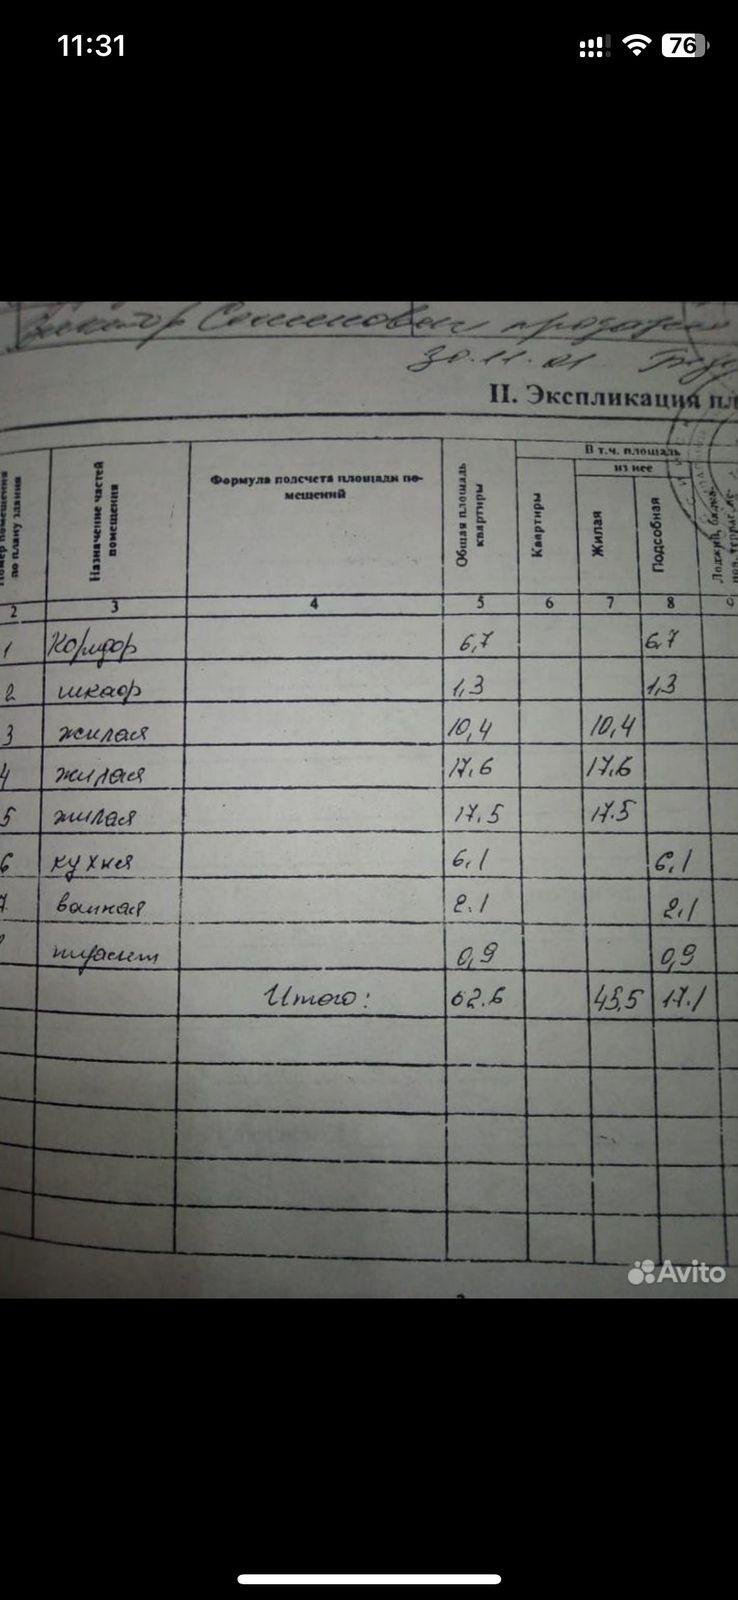 11:31
76
30.11.01
II. Экспликация пл
Номер помещения по плану здания
Назначение частей помещения
Формула подсчета площади по-
мещений
Общая площадь квартиры
В т.ч. площадь
из нее
Квартиры
Жилая
Подсобная
Лоджий, балко-
2 3 4 5 6 7 8 9
1 Коридор 6,7 6,7
2 шкаф 1,3 1,3
3 жилая 10,4 10,4
4 жилая 17,6 17,6
5 жилая 17,5 17.5
6 кухня 6,1 6,1
7 ванная 2.1 2,1
туалет 0,9 0,9
Итого: 62.6 45,5 17.1
Avito